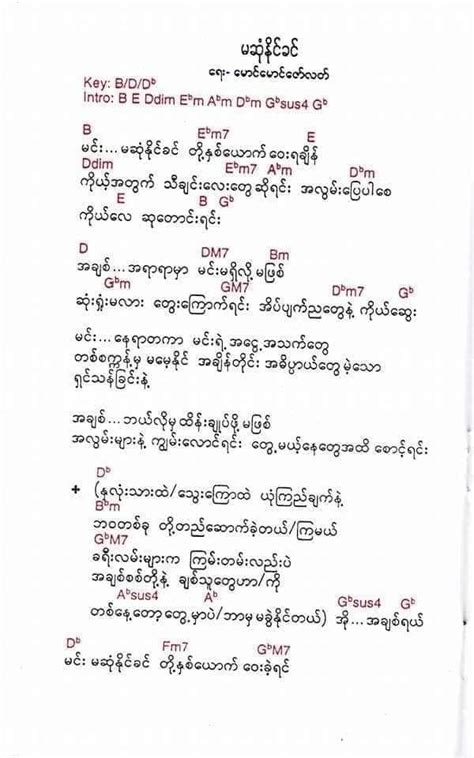 မဆုံနိုင်ခင်
ရေး- မောင်မောင်ဇော်လတ်
Key: B/D/Dᵇ
Intro: B E Ddim Eᵇm Aᵇm Dᵇm Gᵇsus4 Gᵇ
B Eᵇm7 E
မင်း... မဆုံနိုင်ခင် တို့နှစ်ယောက် ဝေးရချိန်
Ddim Eᵇm7 Aᵇm Dᵇm
ကိုယ့်အတွက် သီချင်းလေးတွေ ဆိုရင်း အလွမ်းပြေပါစေ
E B Gᵇ
ကိုယ်လေ ဆုတောင်းရင်း
D DM7 Bm
အချစ်...အရာရာမှာ မင်းမရှိလို့ မဖြစ်
Gᵇm GM7 Dᵇm7 Gᵇ
ဆုံးရှုံးမလား တွေးကြောက်ရင်း အိပ်ပျက်ညတွေနဲ့ ကိုယ်ဆွေး
မင်း...နေရာတကာ မင်းရဲ့ အငွေ့အသက်တွေ
တစ်စက္ကန့်မှ မမေ့နိုင် အချိန်တိုင်း အဓိပ္ပာယ်တွေ မဲ့သော
ရှင်သန်ခြင်းနဲ့
အချစ်...ဘယ်လိုမှ ထိန်းချုပ်ဖို့ မဖြစ်
အလွမ်းများနဲ့ ကျွမ်းလောင်ရင်း တွေ့မယ့်နေ့တွေအထိ စောင့်ရင်း
Dᵇ
+ (နှလုံးသားထဲ/သွေးကြောထဲ ယုံကြည်ချက်နဲ့
Bᵇm
ဘဝတစ်ခု တို့တည်ဆောက်ခဲ့တယ်/ကြမယ်
GᵇM7
ခရီးလမ်းများက ကြမ်းတမ်းလည်းပဲ
အချစ်စစ်တို့နဲ့ ချစ်သူတွေဟာ/ကို
Aᵇsus4 Aᵇ Gᵇsus4 Gᵇ
တစ်နေ့တော့တွေ့မှာပဲ/ဘာမှ မခွဲနိုင်တယ်) အို...အချစ်ရယ်
Dᵇ Fm7 GᵇM7
မင်း မဆုံနိုင်ခင် တို့နှစ်ယောက် ဝေးခဲ့ရင်